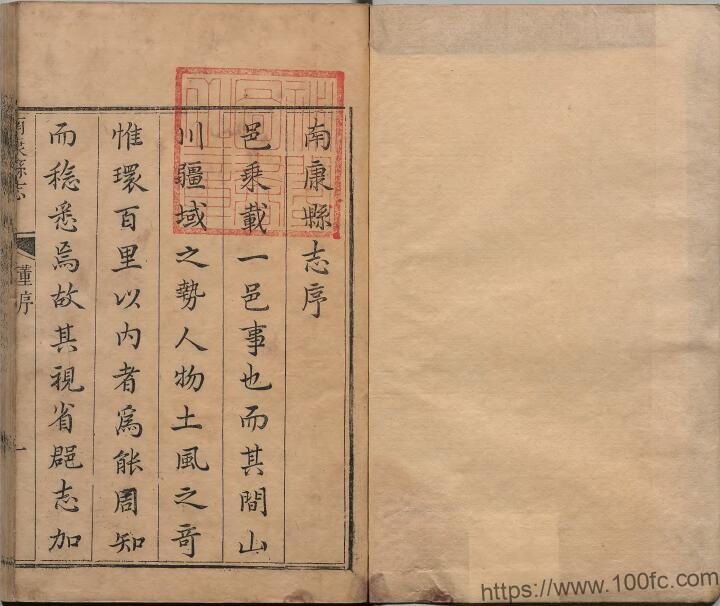 南康縣志序
邑乘載一邑事也而其間山
川疆域之勢人物土風之奇
惟環百里以内者為能周知
而稔悉焉故其視省郡志加
南康縣志
董序
一
https://www.100fc.com